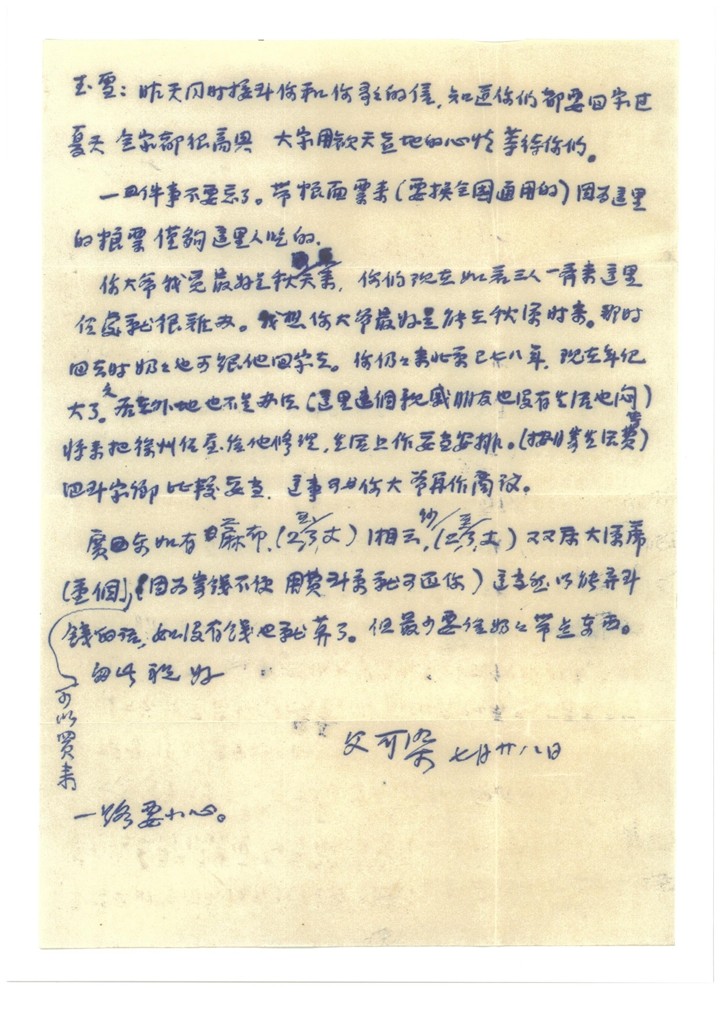 玉雪：昨天同时接到你和你哥哥的信，知道你们都要回家过
夏天 全家都很高兴 大家用欢天喜地的心情等待你们。
一件事不要忘了。带粮票来（要换全国通用的）因为这里
的粮票僅夠這里人吃的.
你大爷我觉最好是秋天来，你们现在如若三人一齊来這里
住處就很難办。我想你大爷最好是能在秋凉时来。那时
回去时奶奶也可跟他回家去。你奶奶来北京已七八年，现在年纪
大了。老在外地也不是办法（這里連個親戚朋友也没有生活也悶）
将来把徐州住屋给他修理，生活上作妥当安排。（按月寄生活费）
回到家鄉比較妥当，這事可与你大爷再作商议。
如有蔴布，（2，3丈）（2，3丈）双人床大凉蓆
（一個），（因为寄钱不便 用费到京就可还你）這当然以能弄到
錢的话，如没有钱也就算了。但最少要给奶奶带点东西。
可以買来
匆此 祝好
父可染 七月廿八日
一路要小心。